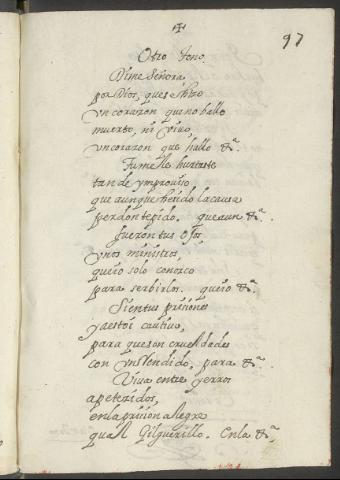 ✝
97
Otro tono.
Dime Señora
por Dios, que se hizo
vn corazon que no hallo
muerto, ni viuo,
vn corazon que hallo &ª
Tu me le hurtaste
tan de ymprouiso,
que aunque he sido la causa
perdon te pido. que aun &ª.
fueron tus ojos
vnos ministros,
que io solo conozco
para serbirlos. que io &ª.
Si en tus prisiones
ya estoi cautiuo,
para que son crueldades
con vn Rendido. para &ª
Viua entre yerros
apetezidos,
en la prision alegre
qual Gilguerillo. En la &ª.